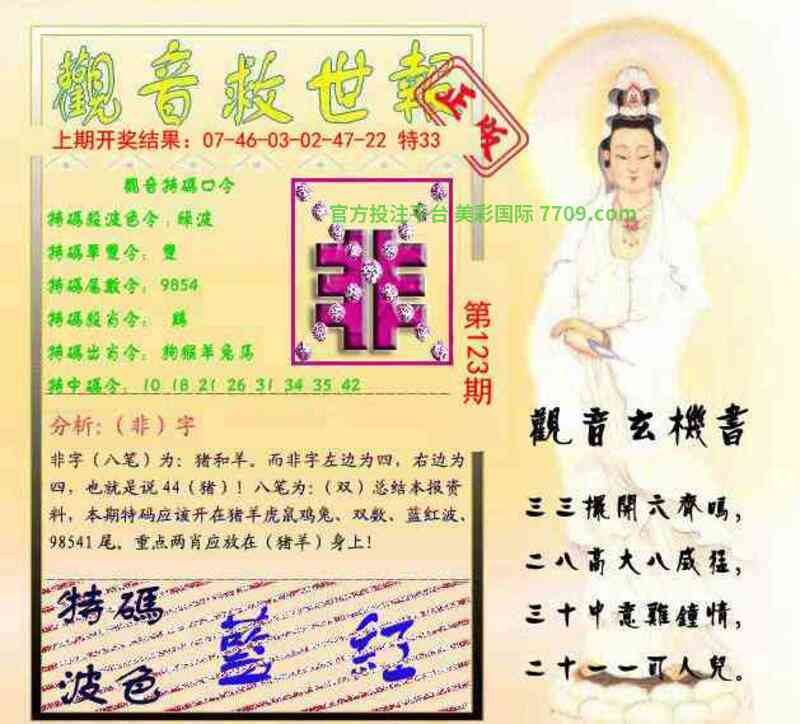 觀音救世報
正版
上期开奖结果：07-46-03-02-47-22 特33
觀音特碼口令
官方投注平台 美彩国际 7709.com
特碼殺波色令：綠波
特碼單雙令：雙
特碼尾數令：9854
特碼殺肖令：鷄
特碼出肖令：狗猴羊兔馬
特中碼令：10 18 21 26 31 34 35 42
非
第123期
分析:（非）字
非字（八笔）为：猪和羊。而非字左边为四，右边为
四，也就是说44（猪）！八笔为：（双）总结本报资
料，本期特码应该开在猪羊虎鼠鸡兔、双数、蓝红波、
98541尾。重点两肖应放在（猪羊）身上！
特碼
波色
藍 紅
觀音玄機書
三三擺開六齊鳴，
二八高大八威猛，
三十中意難鍾情，
二十一一可人兒。